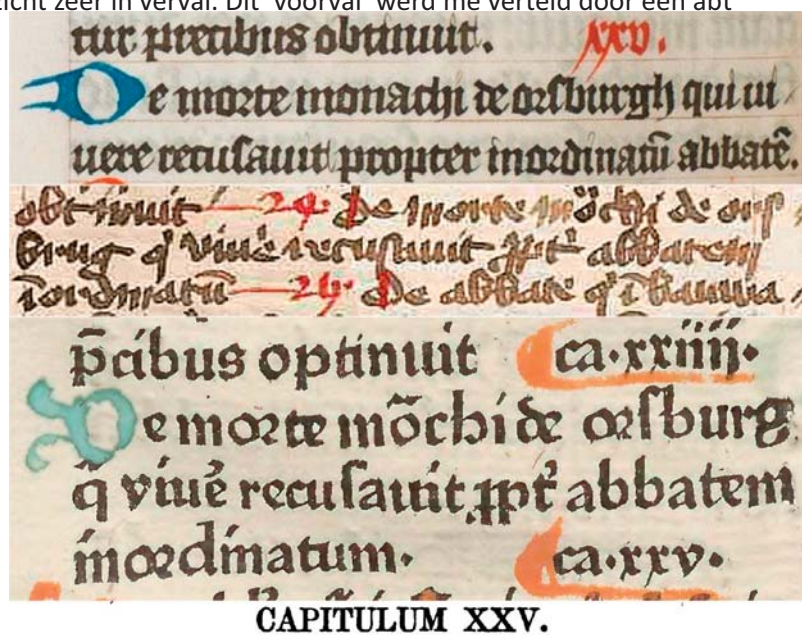 zicht zeer in verval. Dit 'voorval' werd me verteld door een abt
tur precibus obtinuit. xxv.
De morte monachi de orsburgh qui ui
uere recusauit propter inordinatū abbatē.
obtinuit 24 De morte mōchi de ors
brug q̄ viuē recusauit ꝓpt̄ abbatem
īordinatū 25 De abbate q̄ ī bauwa
p̄cibus optinuit ca·xxiiii·
De morte mōchi de orsburg
q̄ viuē recusauit ꝓpt̄ abbatem
inordinatum· ca·xxv·
CAPITULUM XXV.